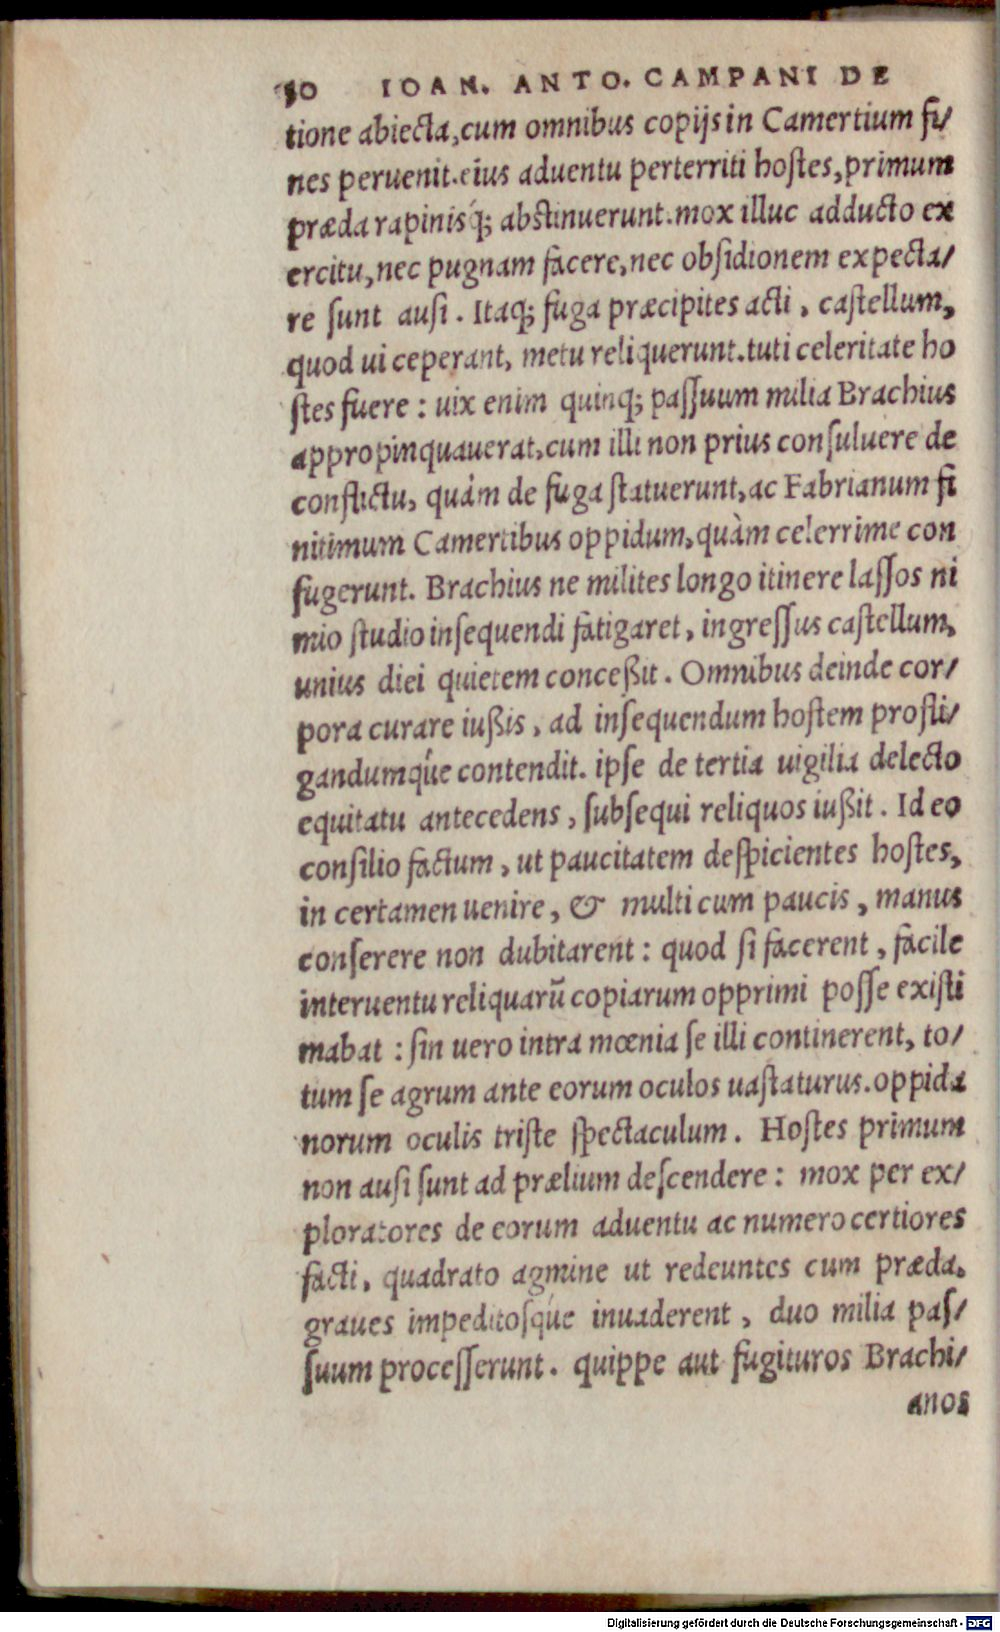 80 IOAN. ANTO. CAMPANI DE
tione abiecta, cum omnibus copijs in Camertium fi/
nes peruenit. eius aduentu perterriti hostes, primum
præda rapinisq́; abstinuerunt. mox illuc adducto ex
ercitu, nec pugnam facere, nec obsidionem expecta/
re sunt ausi. Itaq; fuga præcipites acti, castellum,
quod ui ceperant, metu reliquerunt. tuti celeritate ho
stes fuere: uix enim quinq; passuum milia Brachius
appropinquauerat, cum illi non prius consuluere de
conflictu, quàm de fuga statuerunt, ac Fabrianum fi
nitimum Camertibus oppidum, quàm celerrime con
fugerunt. Brachius ne milites longo itinere lassos ni
mio studio insequendi fatigaret, ingressus castellum,
unius diei quietem conceßit. Omnibus deinde cor/
pora curare iußis, ad insequendum hostem profli/
gandumq́ue contendit. ipse de tertia uigilia delecto
equitatu antecedens, subsequi reliquos iußit. Id eo
consilio factum, ut paucitatem despicientes hostes,
in certamen uenire, & multi cum paucis, manus
conserere non dubitarent: quod si facerent, facile
interuentu reliquarũ copiarum opprimi posse existi
mabat: sin uero intra mœnia se illi continerent, to/
tum se agrum ante eorum oculos uastaturus. oppida
norum oculis triste spectaculum. Hostes primum
non ausi sunt ad prælium descendere: mox per ex/
ploratores de eorum aduentu ac numero certiores
facti, quadrato agmine ut redeuntes cum præda,
graues impeditosq́ue inuaderent, duo milia pas/
suum processerunt. quippe aut fugituros Brachi/
anos
Digitalisierung gefördert durch die Deutsche Forschungsgemeinschaft - DFG